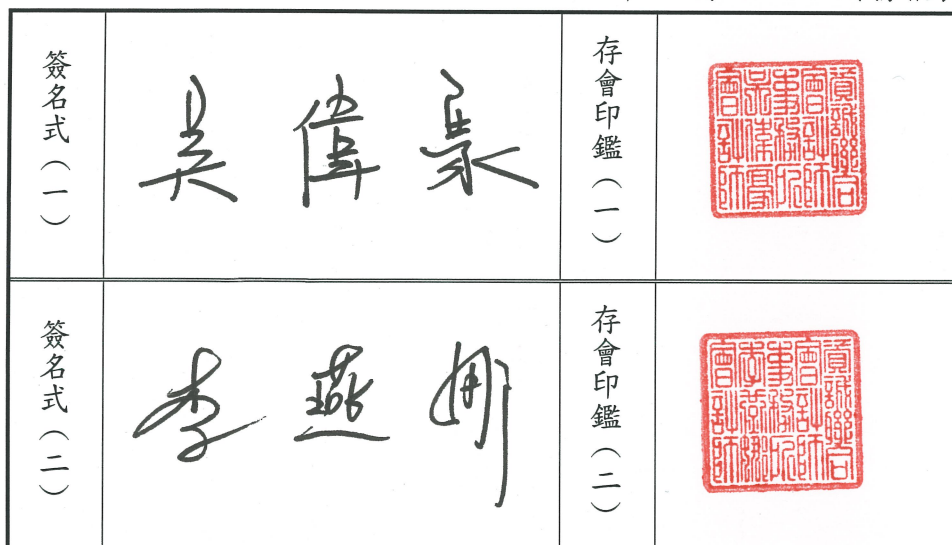 簽名式(一)
吳偉豪
存會印鑑(一)
資誠聯合
會計師
事務所
吳偉豪
會計師
簽名式(二)
李燕娜
存會印鑑(二)
資誠聯合
會計師
事務所
李燕娜
會計師